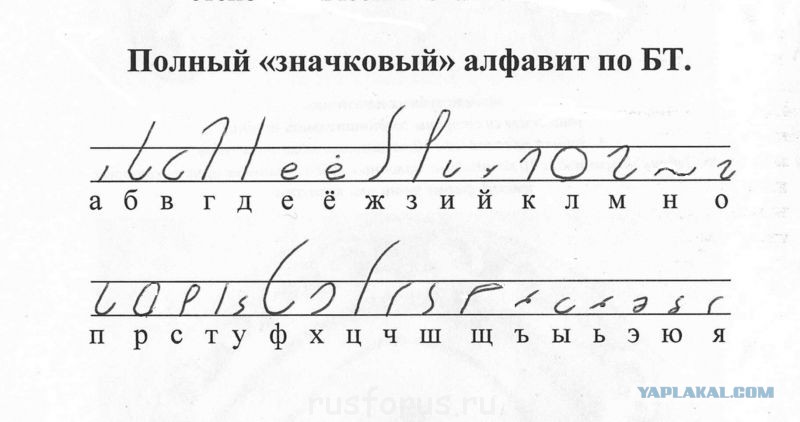 Полный «значковый» алфавит по БТ.
а б в г д е ё ж з и й к л м н о
п р с т у ф х ц ч ш щ ъ ы ь э ю я
YAPLAKAL.COM
rusforus.ru